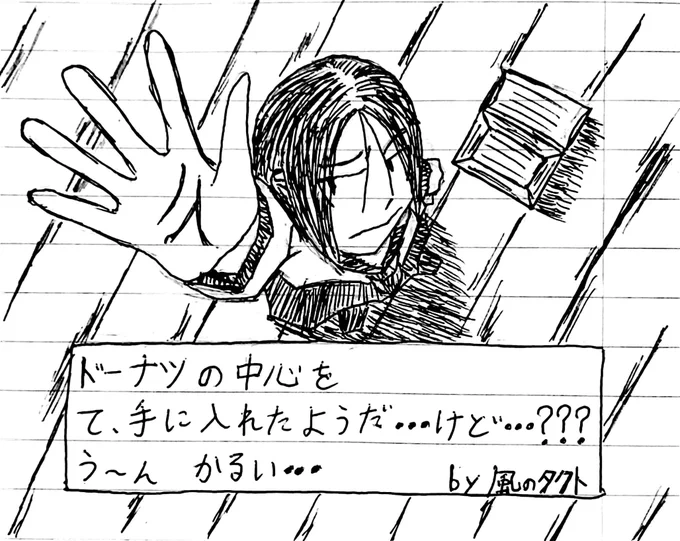 ドーナツの中心を
て、手に入れたようだ・・・けど・・・???
う〜ん かるい・・・
by 風のタクト